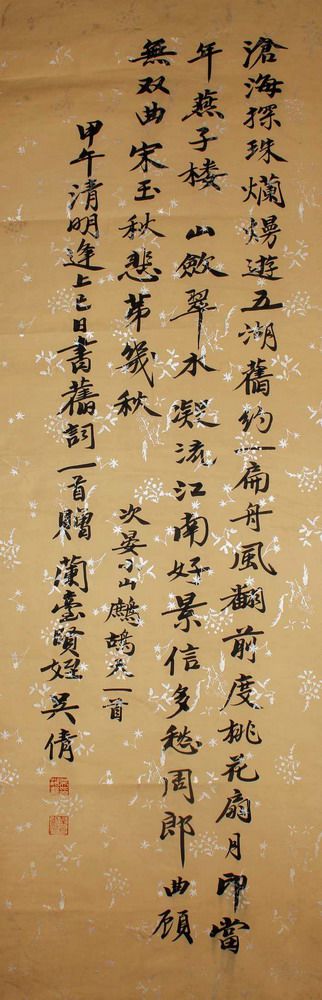 滄海探珠爛熳遊五湖舊約一扁舟風翻前度桃花扇月印當
年燕子樓 山斂翠水凝流江南好景信多愁周郎曲顧
無双曲宋玉秋悲第幾秋
次晏小山鷓鴣天一首
甲午清明逢上巳日書舊詞一首贈 蘭臺賢姪 吳倩